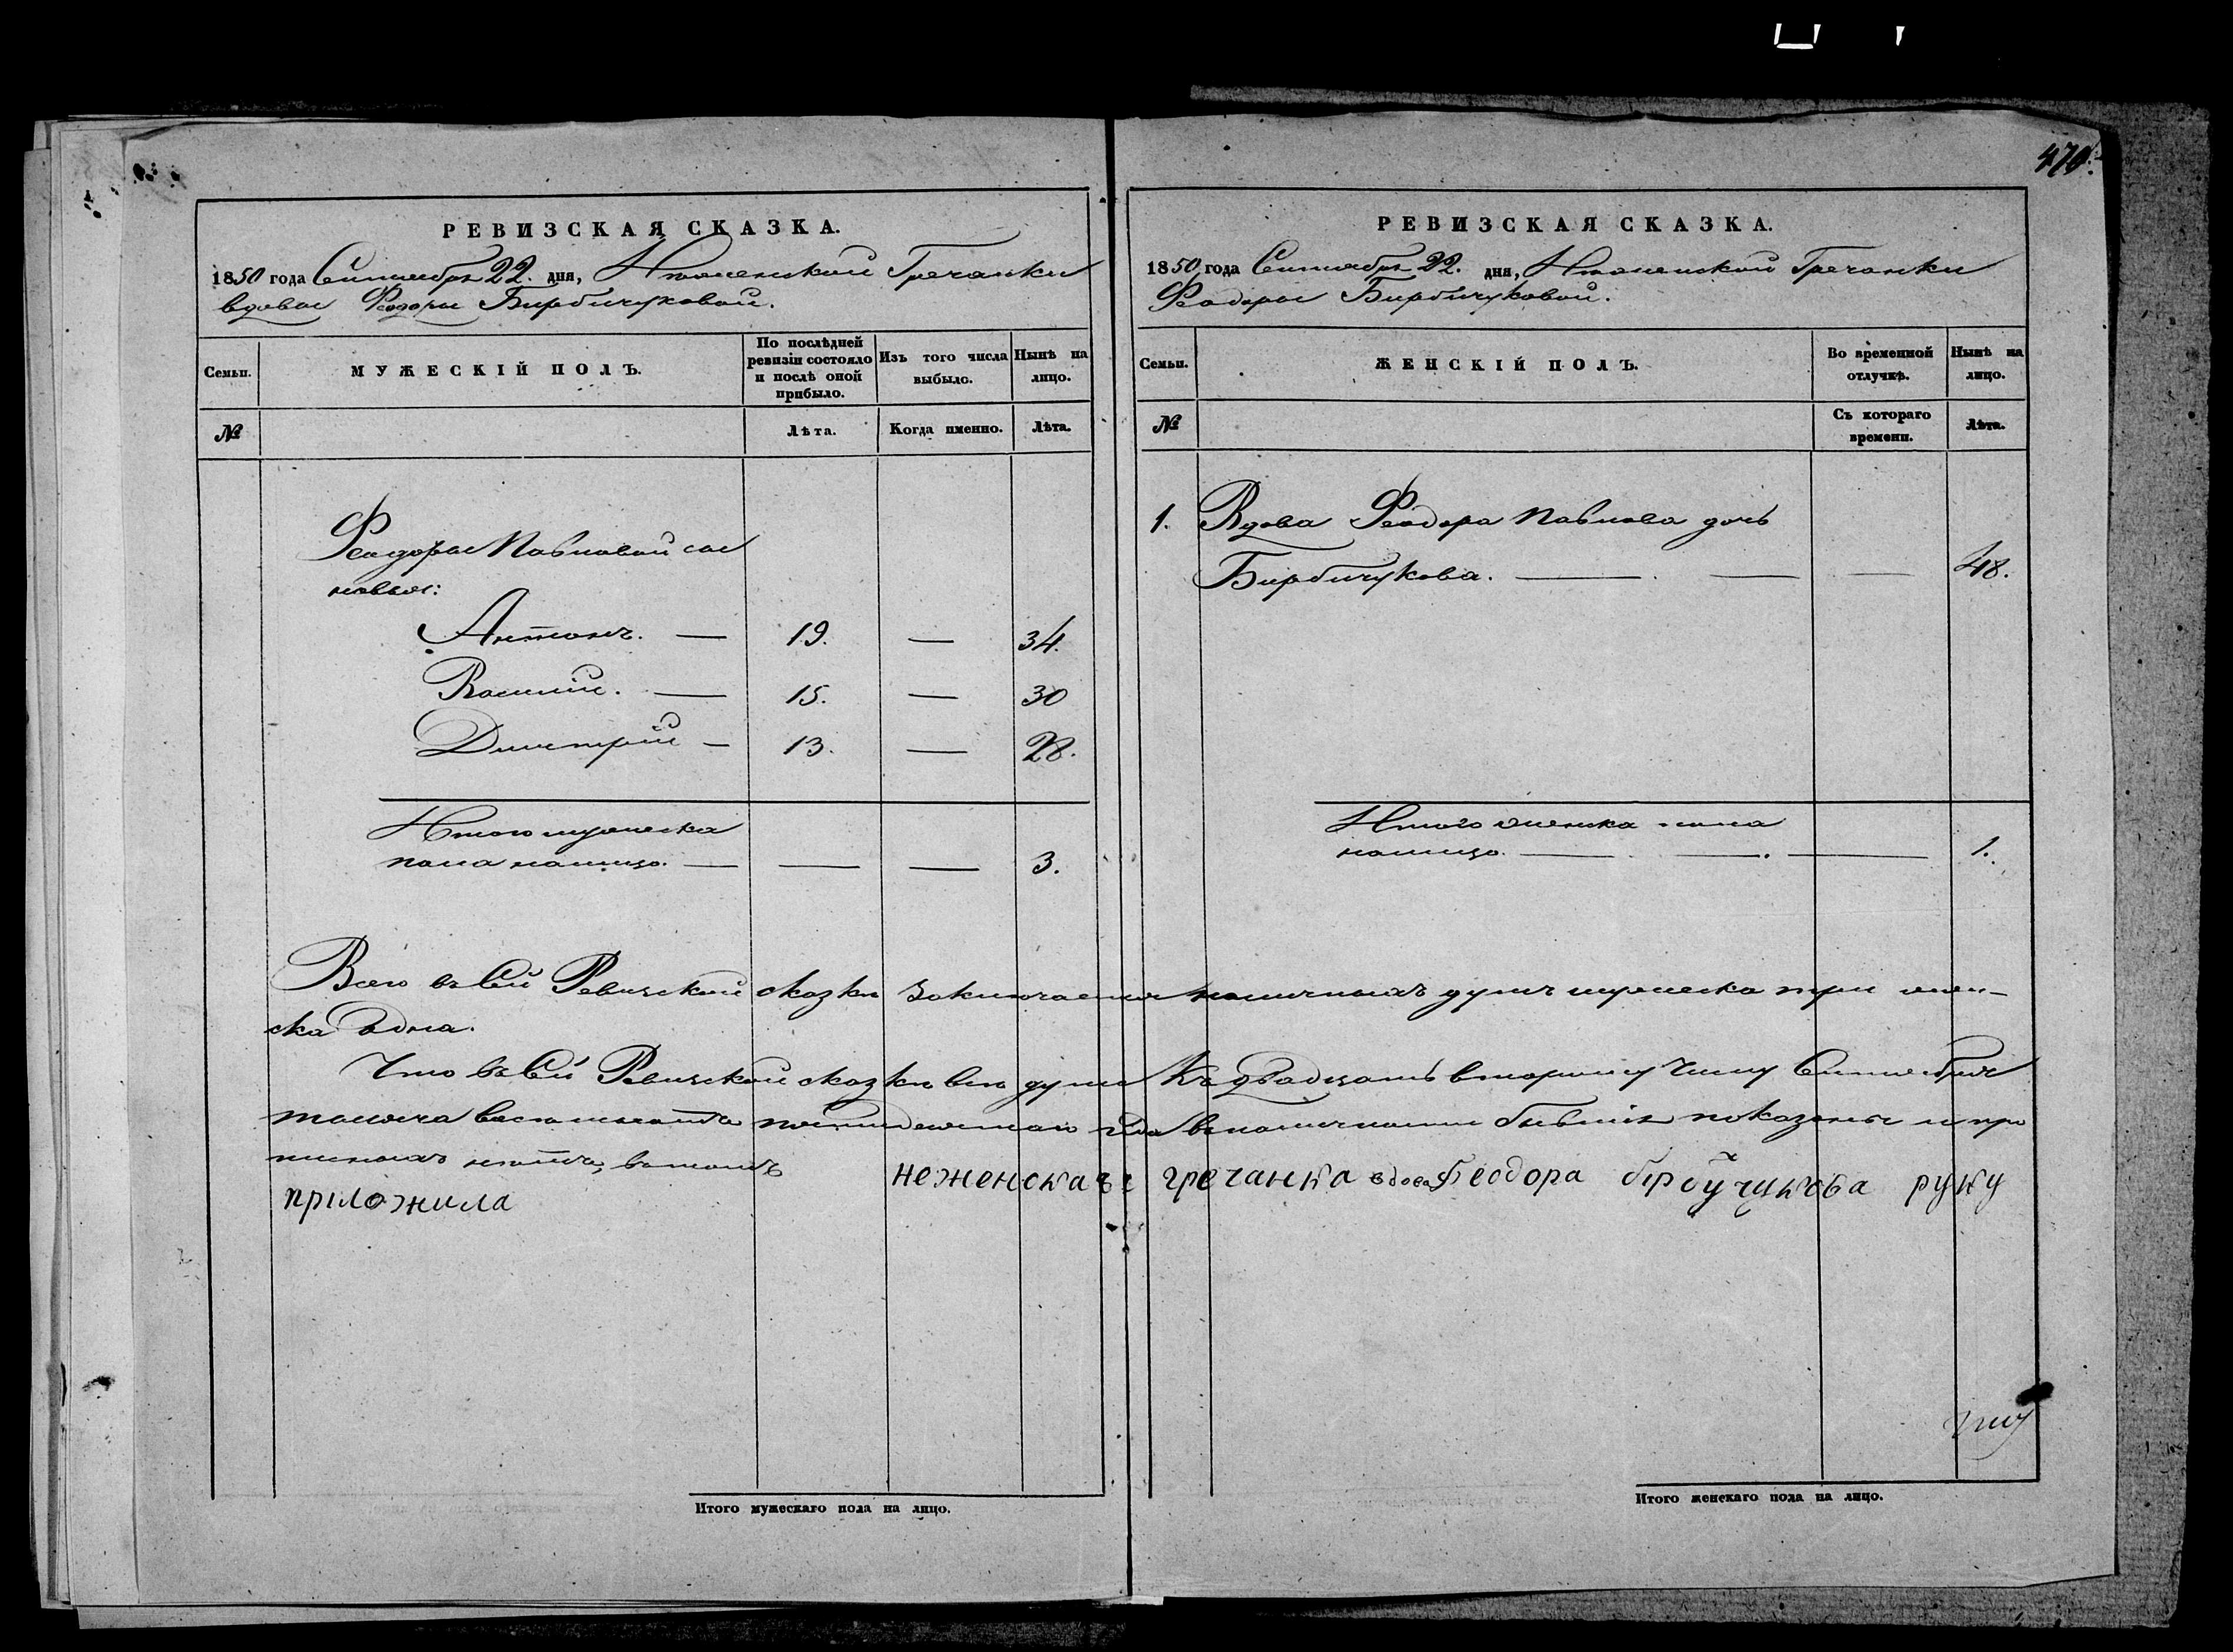 470.
РЕВИЗСКАЯ СКАЗКА.
1850 года Сентября 22. дня, Нѣженской Гречанки
вдовы Феодоры Бирбичуковой.
Семьи.
МУЖЕСКІЙ ПОЛЪ.
По послѣдней ревизіи состояло и послѣ оной прибыло.
Изъ того числа выбыло.
Нынѣ на лицо.
№
Лѣта.
Когда именно.
Лѣта.
Феодоры Павловой сы
новья:
Антонъ. — 19. — 34.
Василій. — 15. — 30
Димитрій — 13. — 28.
Итого мужеска
пола налицо. — — — 3.
РЕВИЗСКАЯ СКАЗКА.
1850 года Сентября 22. дня, Нѣженской Гречанки
Феодоры Бирбичуковой.
Семьи.
ЖЕНСКІЙ ПОЛЪ.
Во временной отлучкѣ.
Нынѣ на лицо.
№
Съ котораго времени.
Лѣта.
1. Вдова Феодора Павлова дочь
Бирбичукова. — — — 48.
Итого женска пола
налицо. — — — 1.
Всего въ Сей Ревизской сказкѣ заключается наличныхъ душъ мужеска три жен-
ска одна.
Что въ Сей Ревизской сказкѣ всѣ души Къ двадцать второму Числу Сентября
тысяча восемьсотъ пятидесятаго года въ наличности бывшія показаны и про
писныхъ нѣтъ, въ томъ неженская гречанка вдова Феодора бірбучукова руку
пріложила
Итого мужескаго пола на лицо.
Итого женскаго пола на лицо.